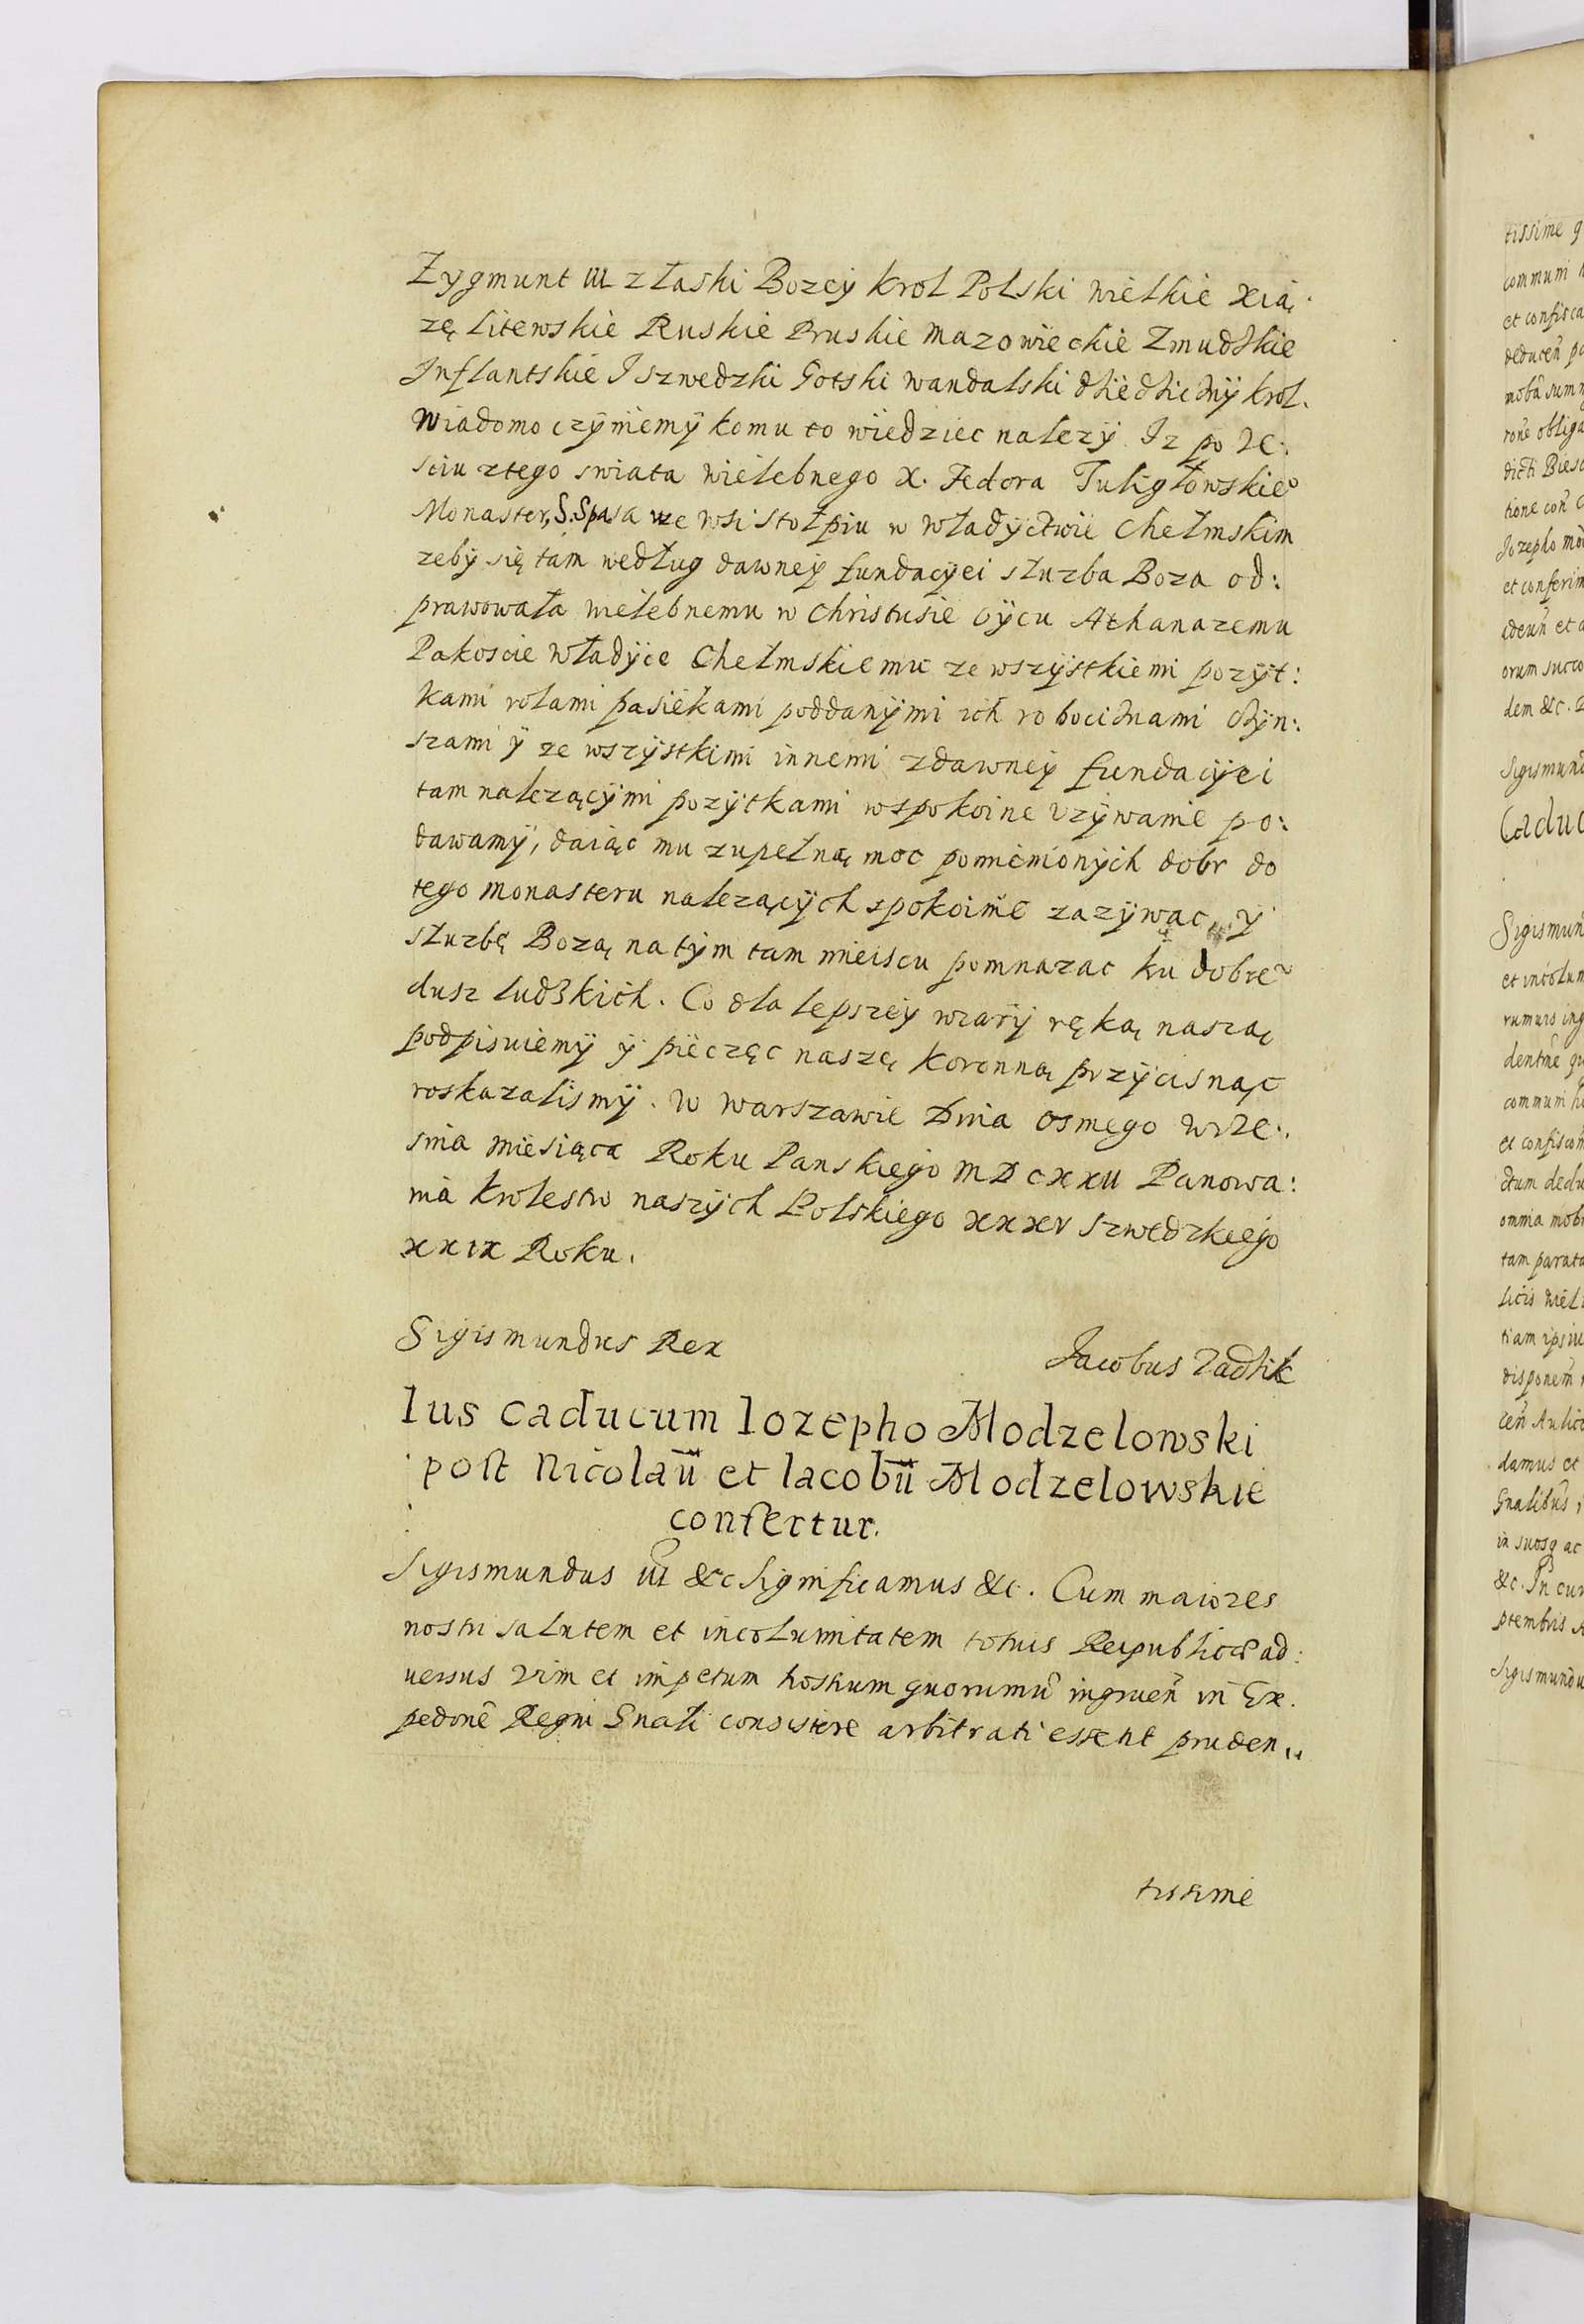 Zygmunt III z łaski Bozey Krol Polski wielkie xią:
zę Litewskie Ruskie Pruskie Mazowieckie Zmudzkie
Inflantskie I szwedzki Gotski wandalski dziedziczny krol.
Wiadomo czyniemy komu to wiedziec nalezy Iz po ze:
sciu ztego swiata wielebnego X. Fedora Tuligłowskie°
Monaster, S. Spasa we wsi Stołpiu w władyctwie Chełmskim
zeby się tam według dawney fundacyei słuzba Boza od:
prawowała wielebnemu w Christusie oycu Athanazemu
Pakoscie władyce Chełmskiemu ze wszystkiemi pozyt:
kami rolami pasiekami poddanymi ich robociznami czyn:
szami y ze wszystkimi innemi zdawney fundacyei
tam nalezącymi pozytkami wspokoine uzywanie po:
dawamy, daiąc mu zupełną moc pomienionych dobr do
tego monasteru nalezących spokoinie zazywac, y
słuzbę Bozą na tym tam mieiscu pomnazac ku dobre~
dusz ludzkich. Co dla lepszey wiary ręką naszą
podpisuiemy y pieczęc naszę koronną przycisnąc
roskazalismy. W Warszawie Dnia osmego wrze:
snia miesiąca Roku Panskiego MDCXXII Panowa:
nia krolestw naszych Polskiego XXXV Szwedzkiego
XXIX Roku.
Sigismundus Rex
Jacobus Zadzik
Ius caducum Iozepho Modzelowski
post Nicolaũ et Iacobũ Modzelowskie
confertur.
Sigismundus III &c Significamus &c. Cum maiores
nostri salutem et incolumitatem totius Reipublicæ ad:
uersus vim et impetum hostium quorumũ ingruen̄ in Ex:
pedonẽ Regni Gnali consistere arbitrati essent pruden:
tissime
tissime
communi
et confisca
deducen̄
Sigismund
Caduc
Sigismun
et incolum
rumuis ing
communi
et confiscan̄
ctum dedu
omnia mob
tam parata
tiam ipsiu
disponem̄
damus et
Gnalibus
in suosq ac
&c. In cui
ptembris
Sigismundu